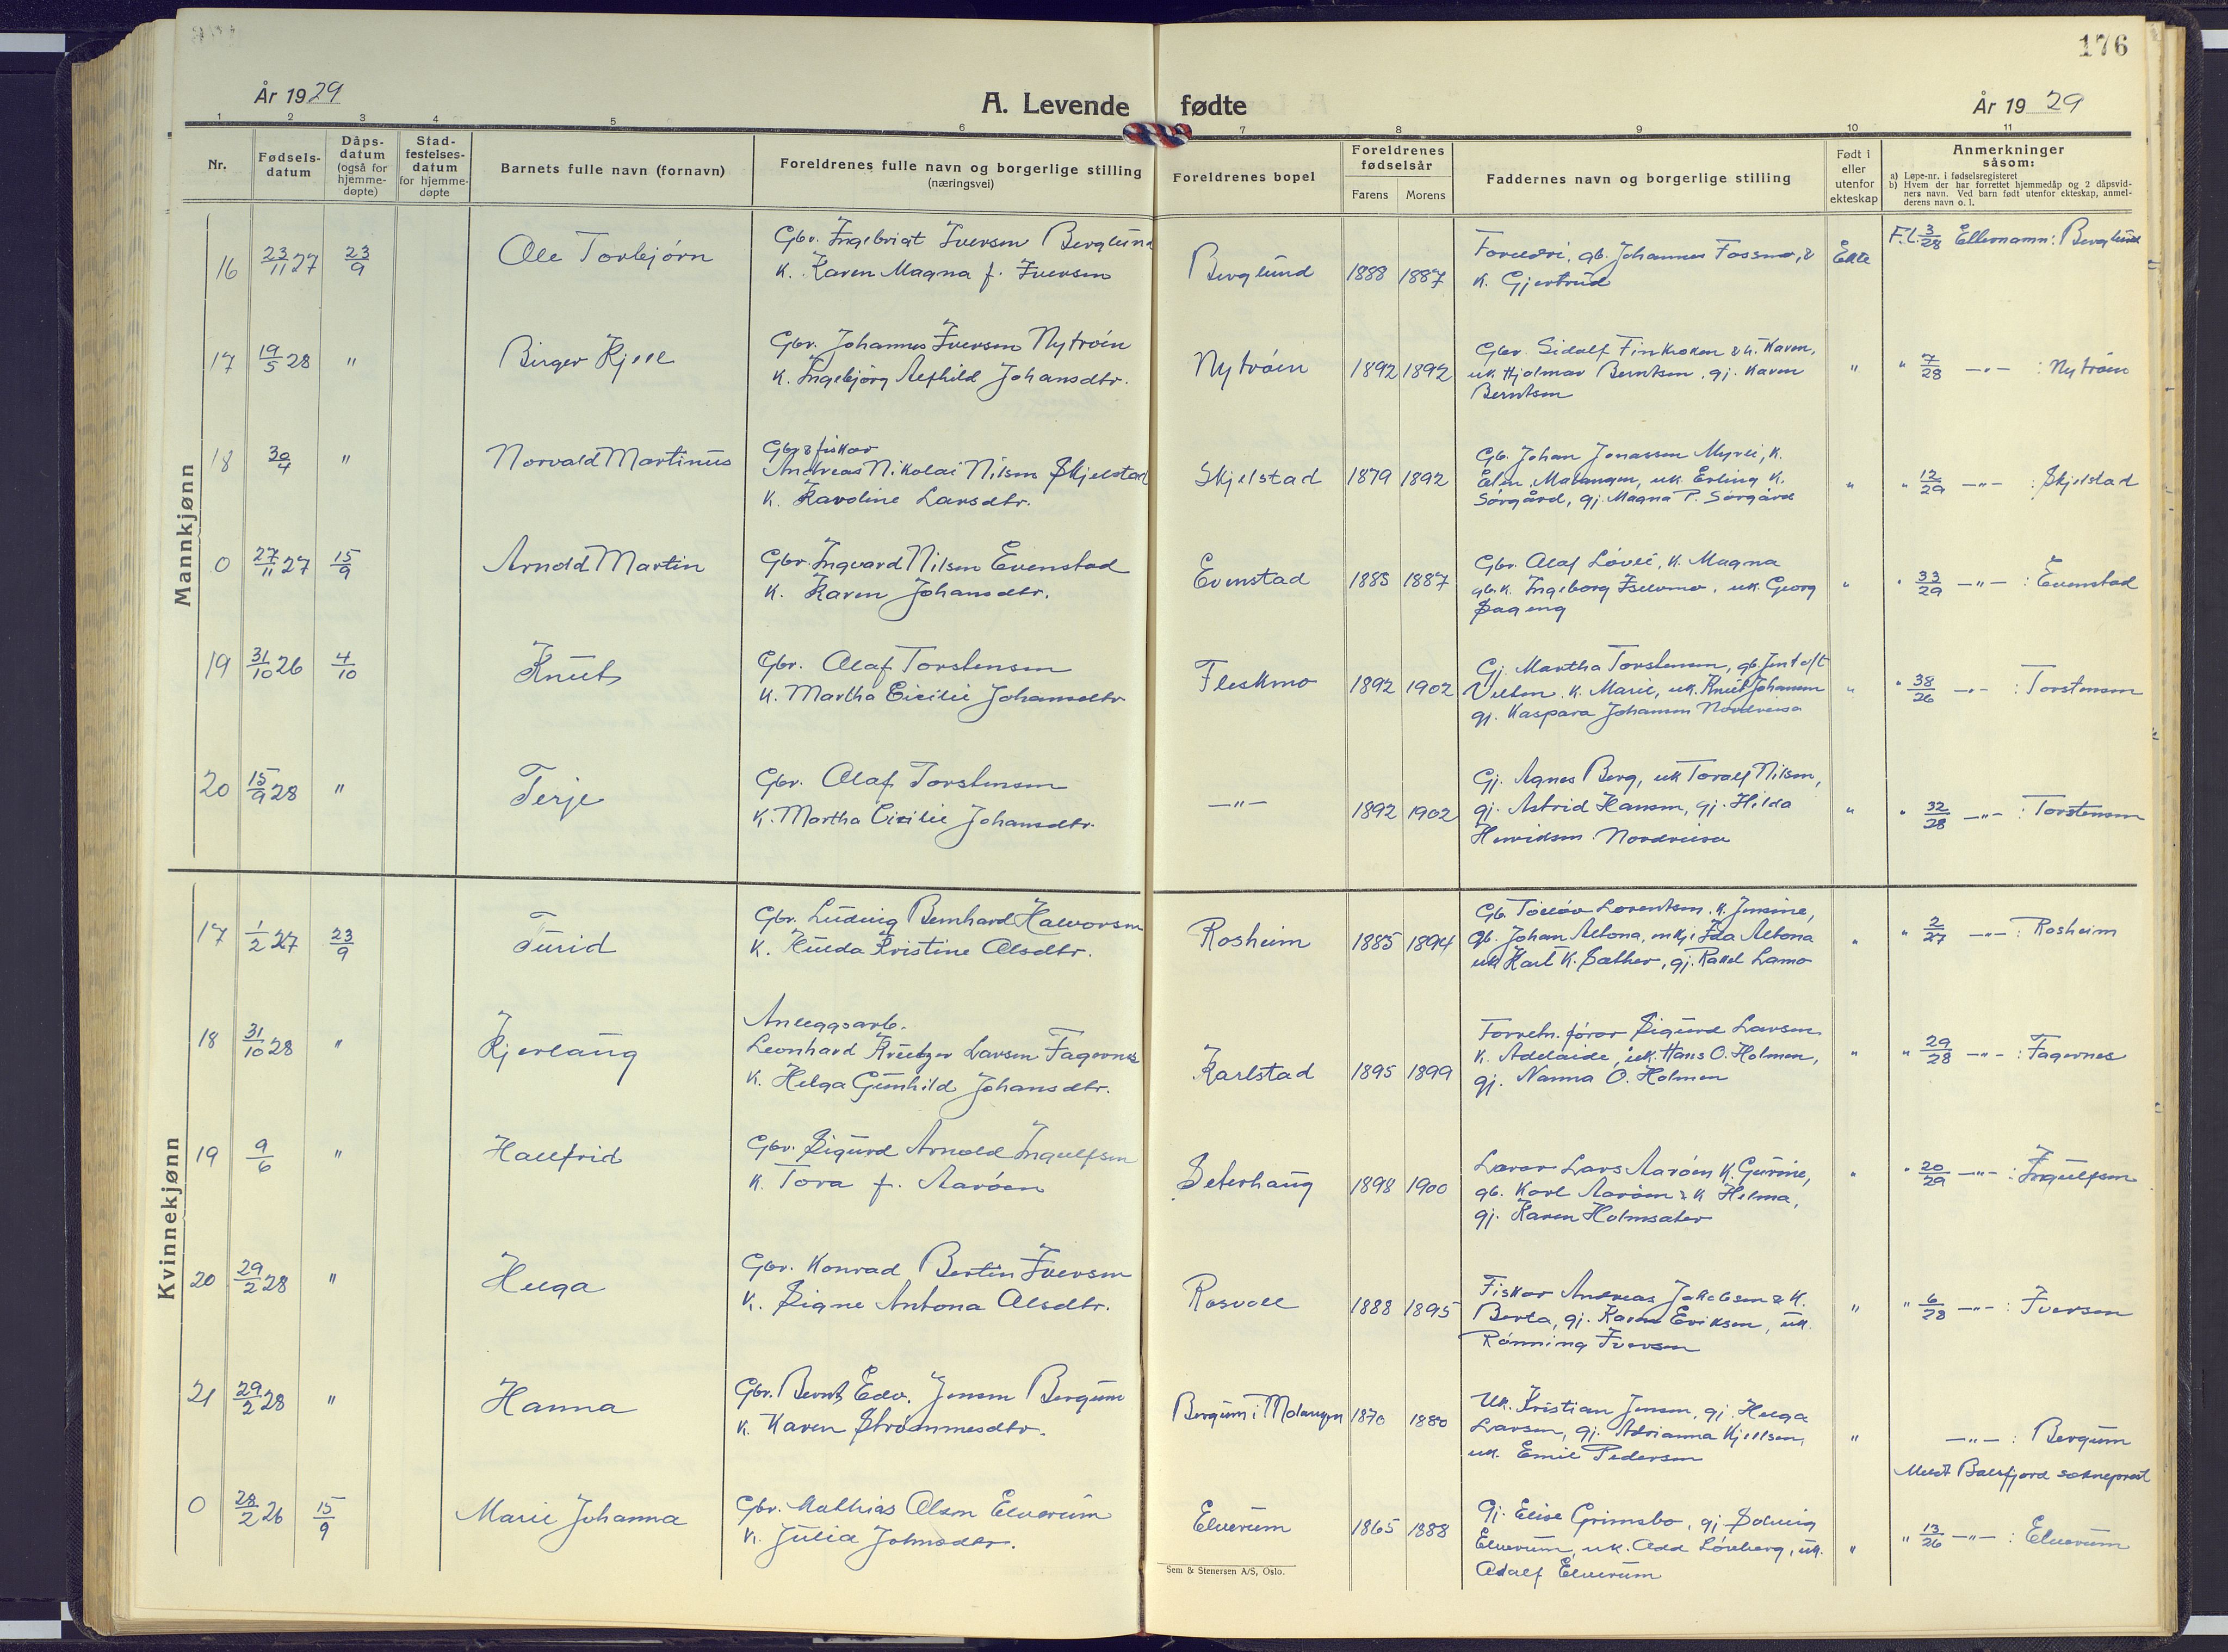 176
År 1929
A. Levende fødte
År 1929
1 2 3 4 5 6 7 8 9 10 11
Nr.
Fødsels-
datum
Dåps-
datum
(også for
hjemme-
døpte)
Stad-
festelses-
datum
for hjemme-
døpte
Barnets fulle navn (fornavn)
Foreldrenes fulle navn og borgerlige stilling
(næringsvei)
Foreldrenes bopel
Foreldrenes
fødselsår
Farens Morens
Faddernes navn og borgerlige stilling
Født i
eller
utenfor
ekteskap
Anmerkninger
såsom:
a) Løpe-nr. i fødselsregisteret
b) Hvem der har forrettet hjemmedåp og 2 dåpsvid-
ners navn. Ved barn født utenfor ekteskap, anmel-
derens navn o. l.
Mannkjønn
16 23/11 27 23/9 Ole Torbjørn
Gbr. Ingebrigt Iversen Berglund
K. Karen Magna f. Iversen
Berglund 1888 1887
Foreldri, gb. Johannes Fossmo, &
K. Gjertrud
Ekte
F.l. 3/28 Etternamn: Berglund
17 19/5 28 " Birger Kjell
Gbr. Johannes Iversen Nytrøen
K. Ingebjørg Alfhild Johansdtr.
Nytrøen 1892 1892
Gbr. Sidolf Finkroken & h. Karen,
uk. Hjalmar Berntsen, gj. Karen
Berntsen
" " 7/28 —"— : Nytrøen
18 30/4 " Norvald Martinus
Gbr & fisker
Andreas Nikolai Nilsen Skjelstad
K. Karoline Larsdtr.
Skjelstad 1879 1892
Gb. Johan Jonassen Myrli, K.
Elen, Malangen, uk. Erling K.
Sørgård, gj. Magna P. Sørgård
" " 12/29 —"— : Skjelstad
0 27/11 27 15/9 Arnold Martin
Gbr. Ingvard Nilsen Evenstad
K. Karen Johansdtr.
Evenstad 1885 1887
Gbr. Olaf Løvli, K. Magna
gb.k. Ingeborg Iselvmo, uk. Georg
Bageng
" " 33/29 —"— : Evenstad
19 31/10 26 4/10 Knut
Gbr. Olaf Torstensen
K. Martha Cicilie Johansdtr
Fleskmo 1892 1902
Gj. Martha Torstensen, gb. Jentoft
K. Marie, uk. Knut Johansen
gj. Kaspara Johansen Nordreisa
" " 38/26 —"— : Torstensen
20 15/9 28 " Terje
Gbr. Olaf Torstensen
K. Martha Cicilie Johansdtr.
—"— 1892 1902
Gj. Agnes Berg, uk Toralf Nilsen,
gj. Astrid Hansen, gj. Hilda
Henriksen Nordreisa
" " 32/28 —"— : Torstensen
Kvinnekjønn
17 1/2 27 23/9 Turid
Gbr. Ludvig Bernhard Halvorsen
K. Hulda Kristine Olsdtr.
Rosheim 1885 1894
Gb. Tollev Lorentsen, K. Jensine,
gb. Johan Altona, Ida Altona
uk Karl K. Sæther, gj. Rakel Lamo
" " 2/27 —"— : Rosheim
18 31/10 28 " Kjerlaug
Anleggsarb.
Leonhard Kreutzer Larsen Fagernes
K. Helga Gunhild Johansdtr.
Karlstad 1895 1899
Forretn.fører Sigurd Larsen
K. Adelaide, uk. Hans O. Holmen,
gj. Nanna O. Holmen
" " 29/28 —"— : Fagernes
19 9/6 " Hallfrid
Gbr. Sigurd Arnold Ingulfsen
K. Tora f. Aarøen
Seterhaug 1898 1900
Lærer Lars Aarøen K. Gurine,
gb. Karl Aarøen & K Helma,
gj. Karen Holmsæter
" " 20/29 —"— : Ingulfsen
20 29/2 28 " Helga
Gbr. Konrad Bertin Iversen
K. Signe Antona Olsdtr.
Rosvoll 1888 1895
Fisker Andreas Jakobsen & K.
Berta, gj. Karen Eriksen, uk.
Rønning Iversen
" " 6/28 —"— : Iversen
21 29/2 28 " Hanna
Gbr. Bernt Edv. Jensen Bergum
K. Karen Strømmesdtr.
Bergum i Malangen 1870 1880
Uk. Kristian Jensen, gj. Helga
Larsen, gj. Adrianna Kjellsen,
uk. Emil Pedersen
" —"— : Bergum
Meldt Balsfjord sokneprest
0 28/2 26 15/9 Marie Johanna
Gbr. Mathias Olsen Elverum
K. Julia Johnsdtr.
Elverum 1865 1888
Gj. Elise Grimsbo, gj Solveig
Elverum, uk. Odd Løvberg, uk.
Adolf Elverum
" " 13/26 —"— : Elverum
Sem & Stenersen A/S, Oslo.